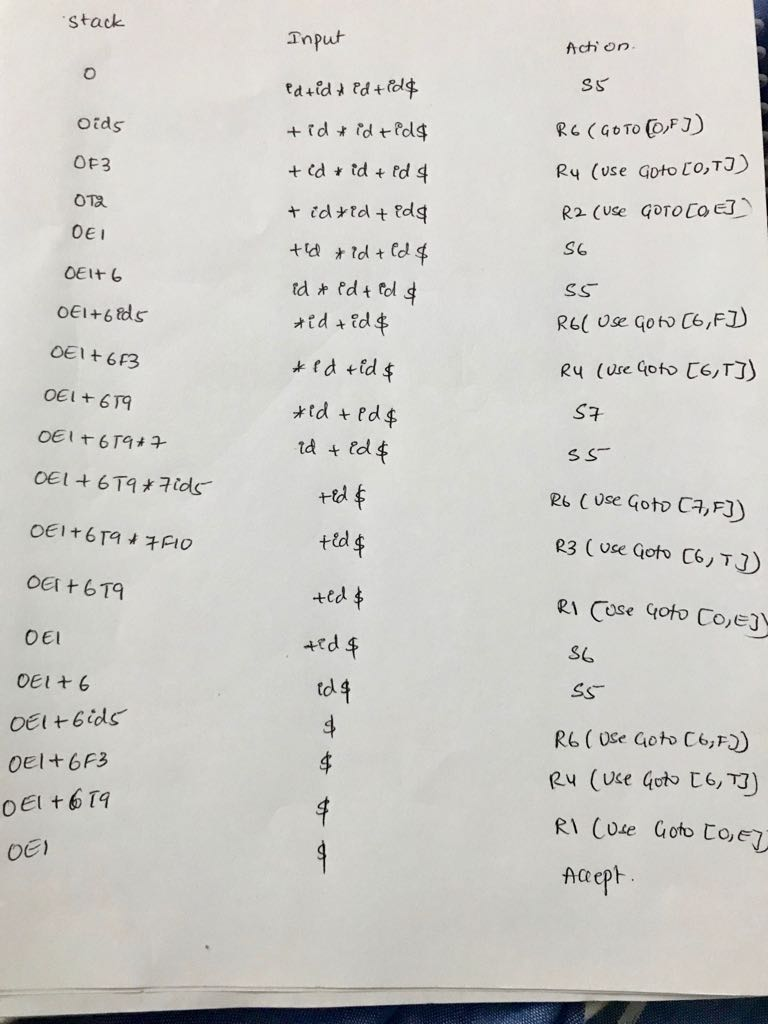 Stack Input Action.
0 id+id*id+id$ S5
0id5 +id*id+id$ R6 (GOTO [0,F])
0F3 +id*id+id$ R4 (use Goto [0,T])
0T2 +id*id+id$ R2 (use GOTO[0,E])
0E1 +id*id+id$ S6
0E1+6 id*id+id$ S5
0E1+6id5 *id+id$ R6( use Goto [6,F])
0E1+6F3 *id+id$ R4 (use Goto [6,T])
0E1+6T9 *id+id$ S7
0E1+6T9*7 id+id$ S5
0E1+6T9*7id5 +id$ R6 (use Goto [7,F])
0E1+6T9*7F10 +id$ R3 (use Goto [6,T])
0E1+6T9 +id$ R1 (use Goto [0,E])
0E1 +id$ S6
0E1+6 id$ S5
0E1+6id5 $ R6 (use Goto [6,F])
0E1+6F3 $ R4 (use Goto [6,T])
0E1+6T9 $ R1 (use Goto [0,E])
0E1 $ Accept.